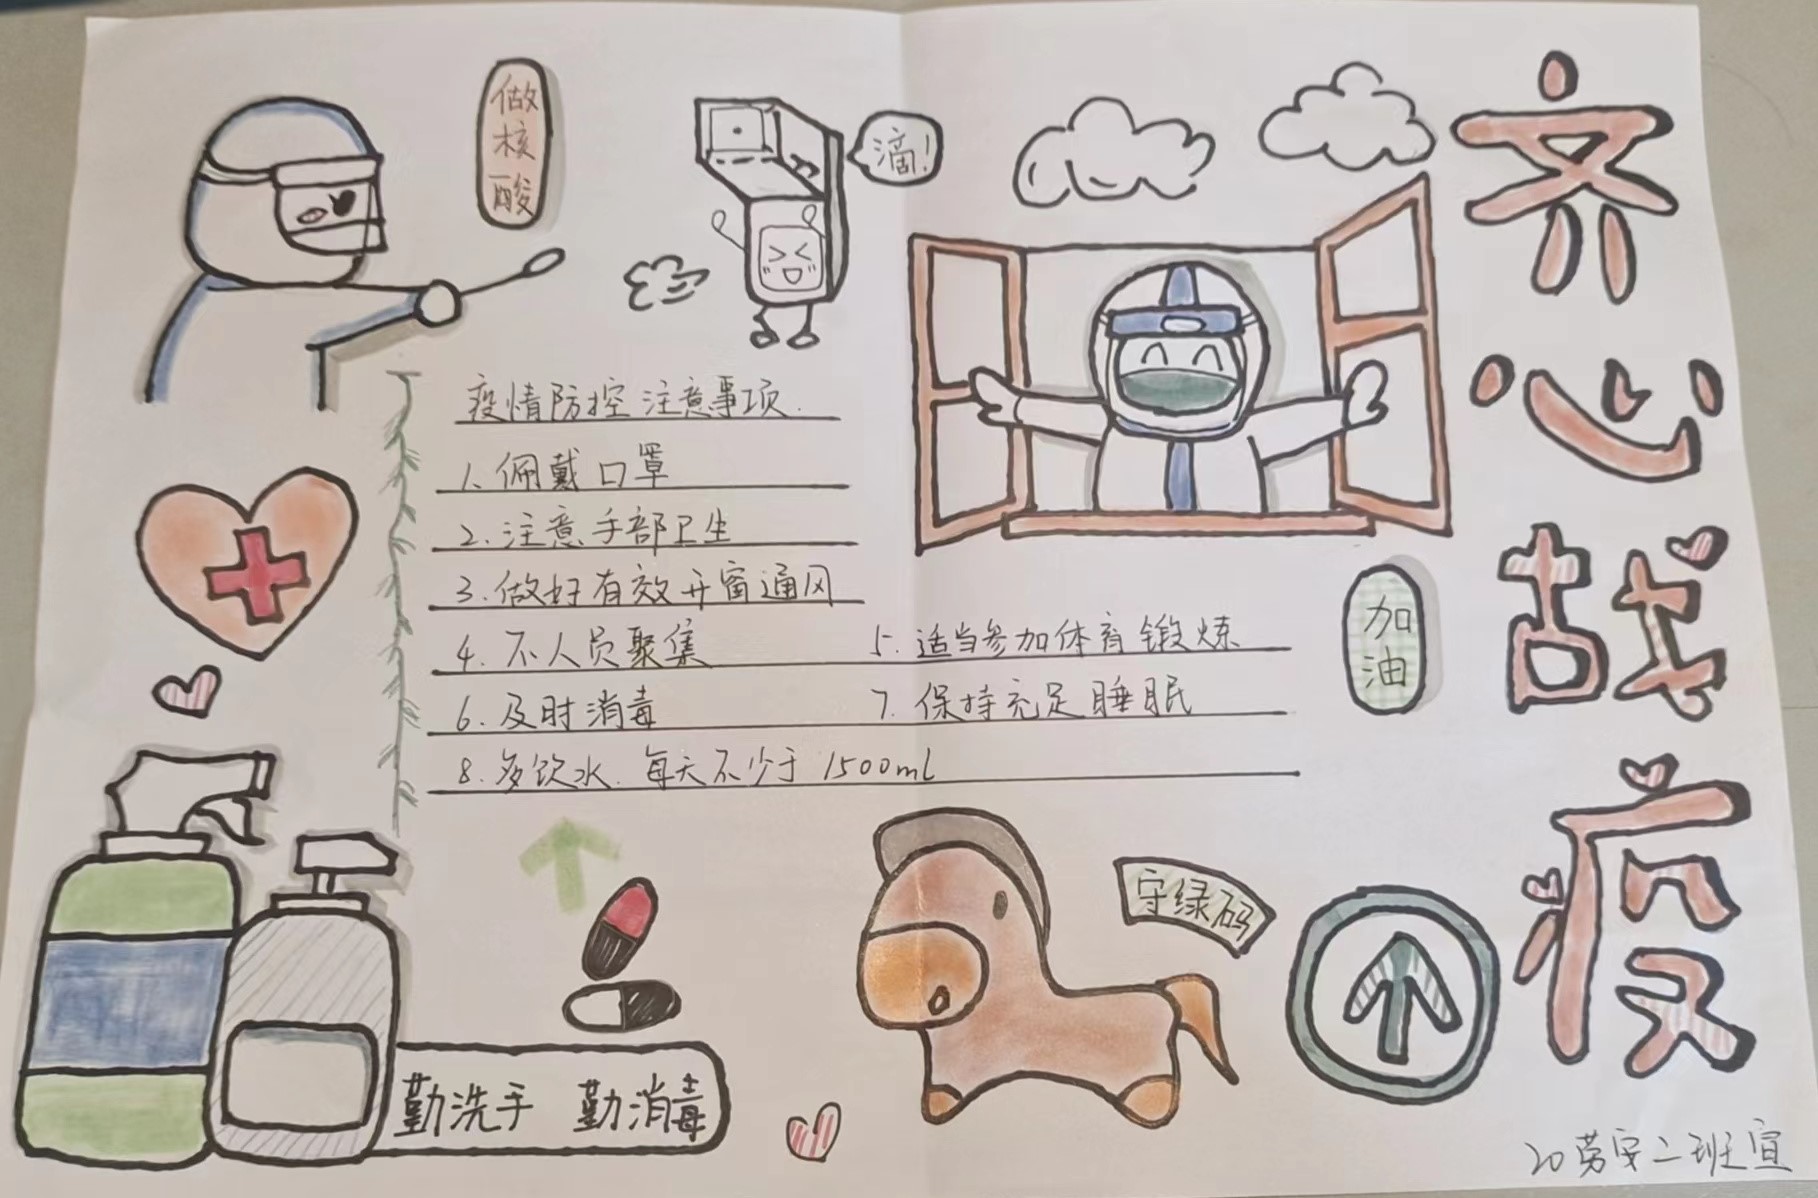 齐心战疫
做核酸
滴！
疫情防控注意事项.
1.佩戴口罩
2.注意手部卫生
3.做好有效开窗通风
4.不人员聚集
5.适当参加体育锻炼
6.及时消毒
7.保持充足睡眠
8.多饮水.每天不少于1500ml
加油
守绿码
勤洗手 勤消毒
20劳安二班宣